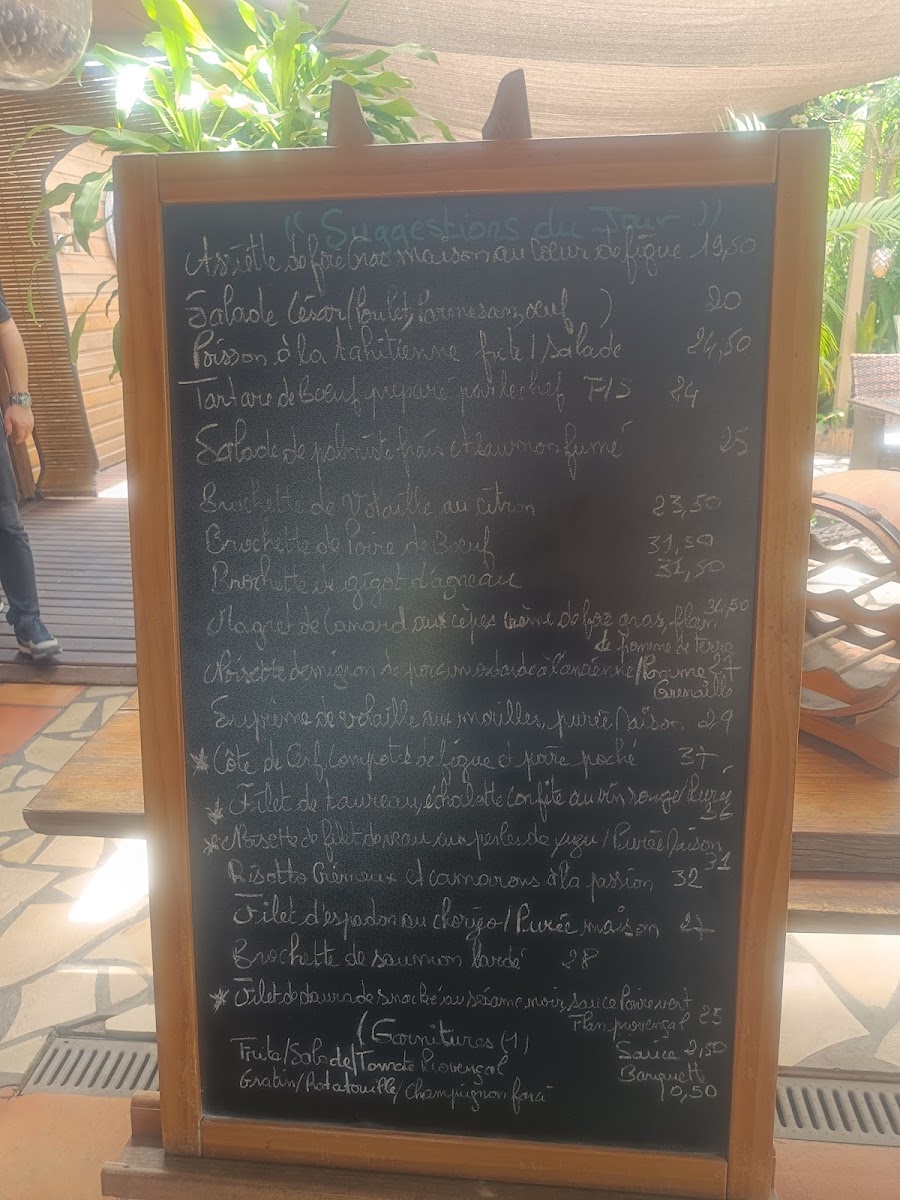 " Suggestions du Jour "
Assiette de foie Gras maison au Coeur de figue 19,50
Salade César (Poulet, Parmesan, œuf ) 20
Poisson à la tahitienne frite / Salade 24,50
Tartare de Bœuf préparé par le chef F/S 24
Salade de palmiste frais et saumon fumé 25
Brochette de Volaille au citron 23,50
Brochette de Poire de Boeuf 31,50
Brochette de gigot d'agneau 31,50
Magret de Canard aux cèpes crème de foz gras, flan 34,50
de pomme de terre
Noisette de mignon de porc moutarde à l'ancienne / Pomme 27
Grenaille
Suprême de volaille aux morilles, purée Maison 29
* Côte de Cerf, Compote de figue et poire poché 37
* Filet de taureau, échalotte confite au vin rouge / Purée
36
* Noisette de filet de veau aux perles de yuzu / Purée Maison
31
Risotto Crémeux et camarons à la passion 32
Filet d'espadon au chorizo / Purée maison 27
Brochette de saumon lardé 28
* Filet de daurade snacké au sésame noir, sauce Poivre vert
Flan provençal 25
(Garnitures (1)
Frite/Salade/Tomate Provençal
Sauce 2,50
Gratin/Ratatouille/Champignon farci
Barquette
0,50